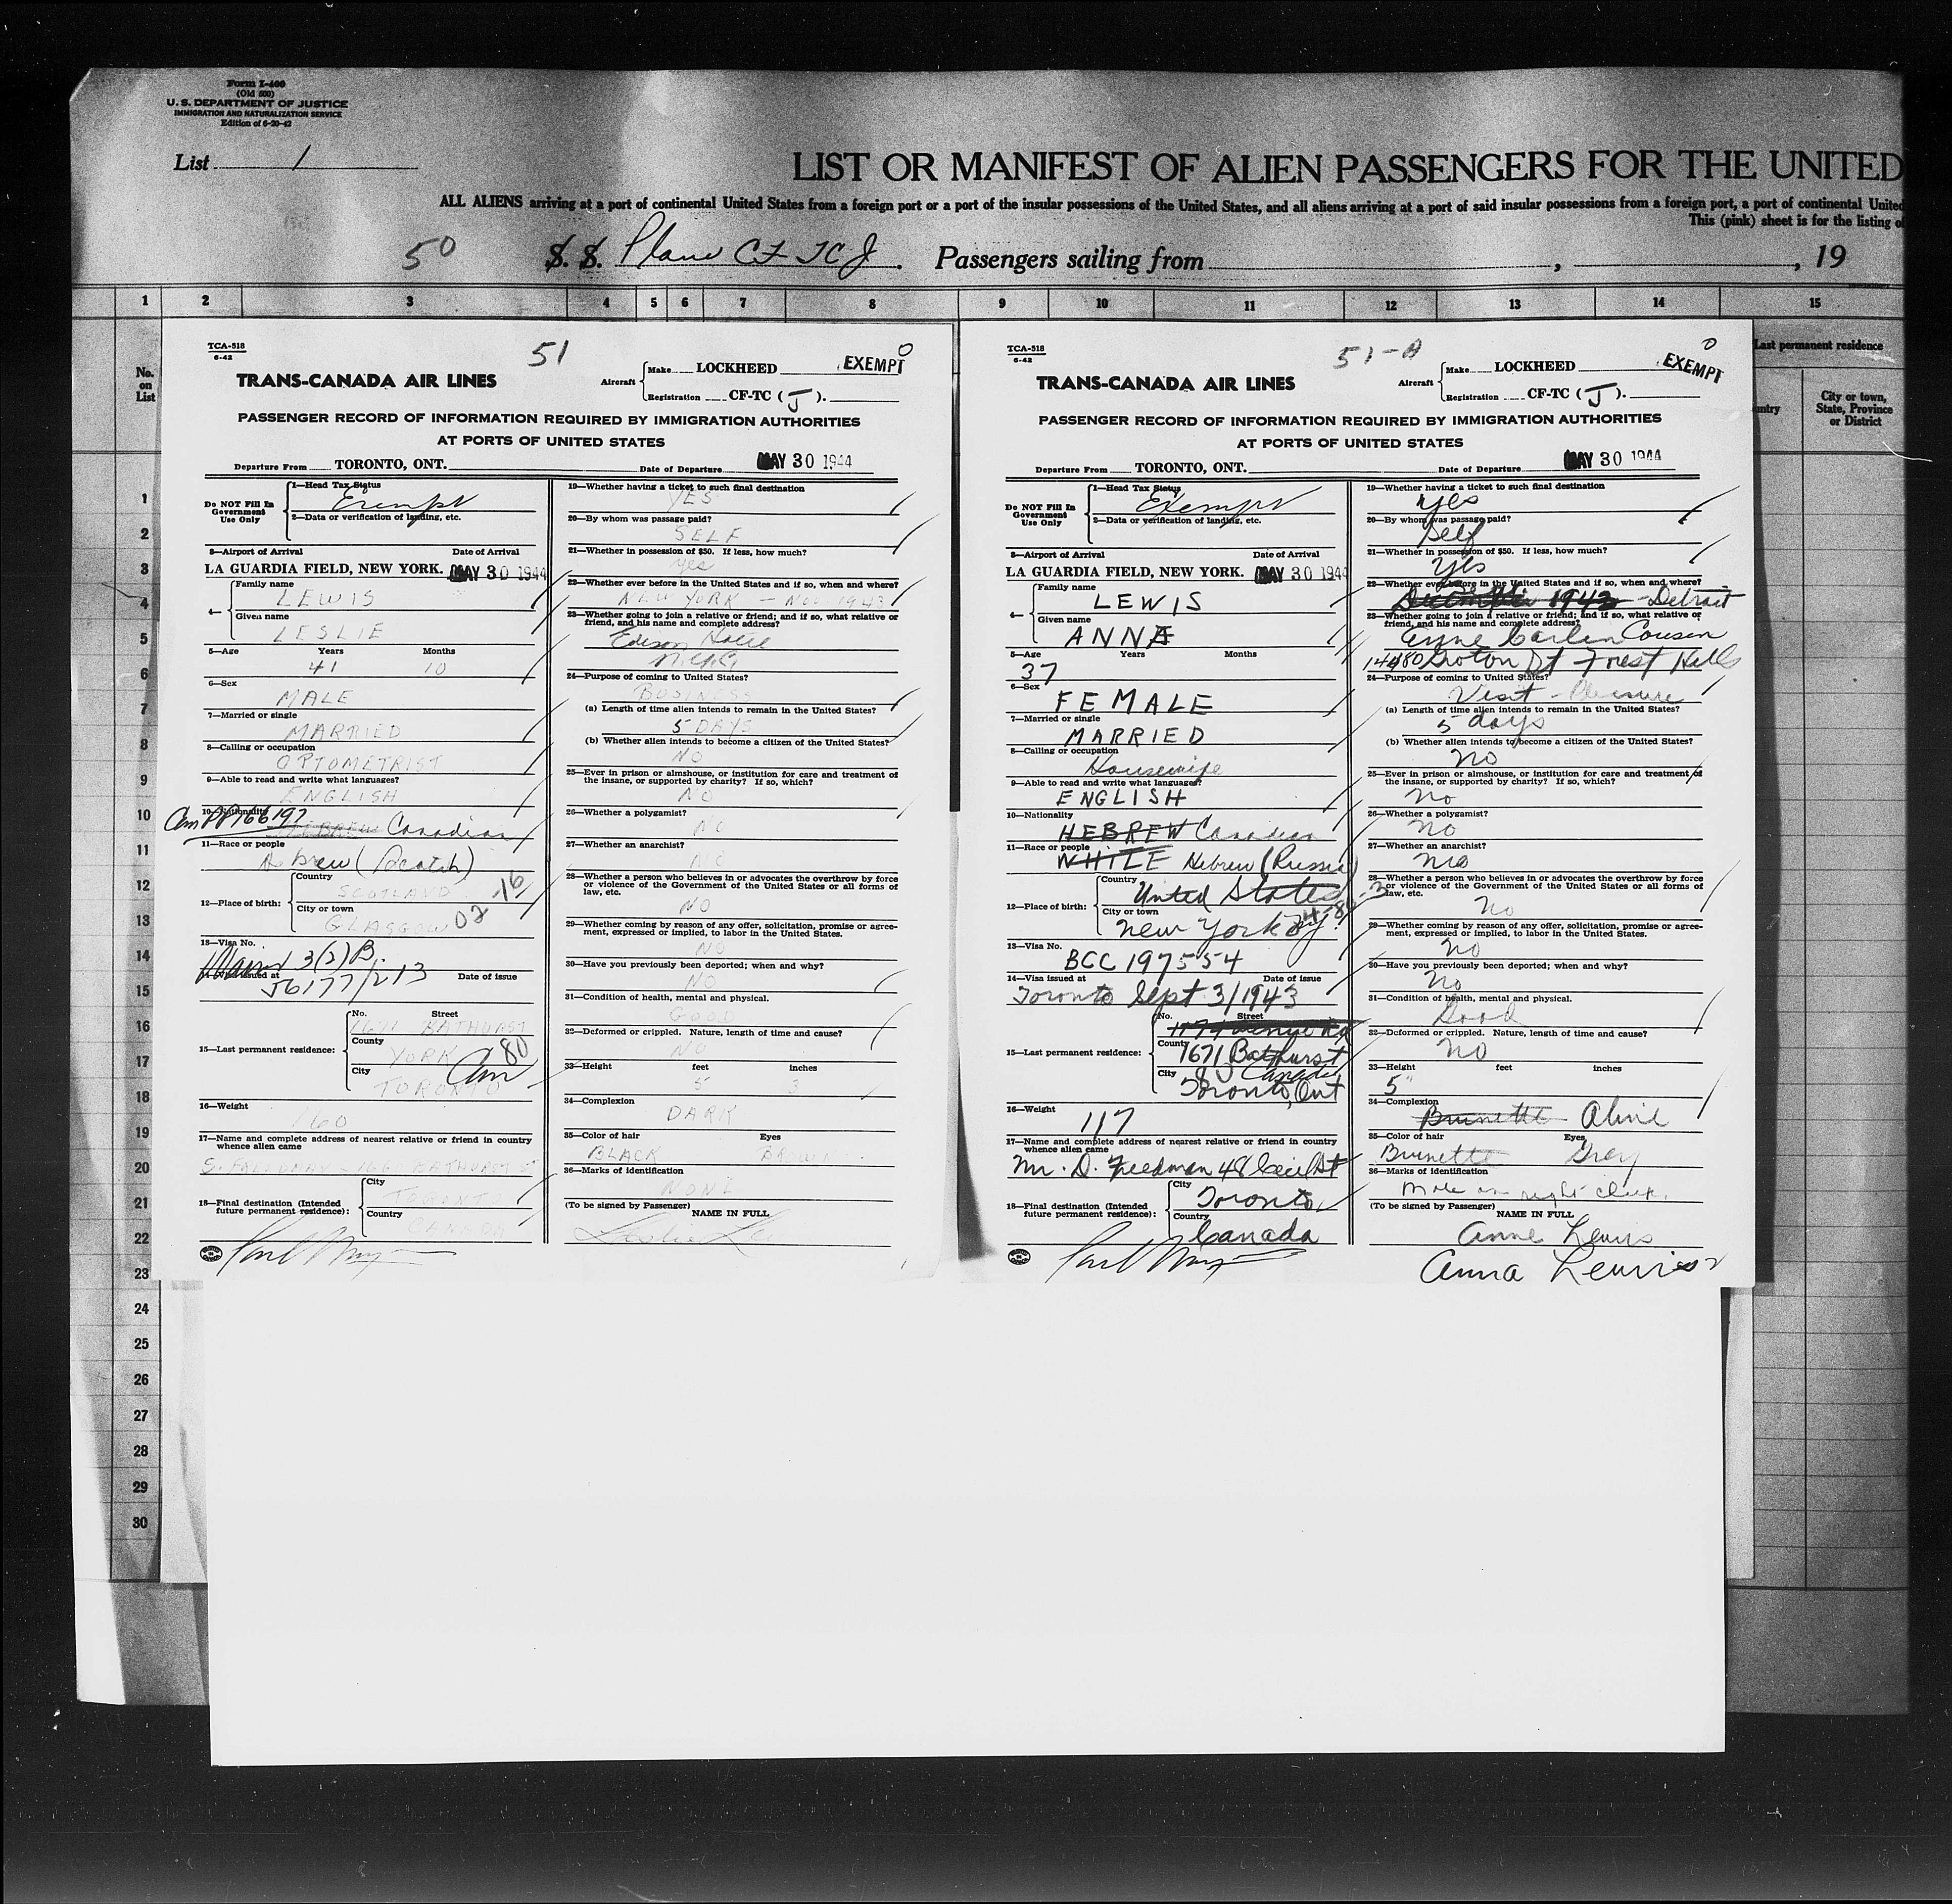 Form I-400
(Old 500)
U. S. DEPARTMENT OF JUSTICE
IMMIGRATION AND NATURALIZATION SERVICE
Edition of 6-20-42
List 1
LIST OR MANIFEST OF ALIEN PASSENGERS FOR THE UNITED
ALL ALIENS arriving at a port of continental United States from a foreign port or a port of the insular possessions of the United States, and all aliens arriving at a port of said insular possessions from a foreign port, a port of continental United
This (pink) sheet is for the listing of
50 S. S. Plane CF TCJ. Passengers sailing from , , 19
1 2 3 4 5 6 7 8 9 10 11 12 13 14 15
No. on List
Last permanent residence
City or town, State, Province or District
1
2
3
4
5
6
7
8
9
10
11
12
13
14
15
16
17
18
19
20
21
22
23
24
25
26
27
28
29
30
TCA-518
6-42
51
TRANS-CANADA AIR LINES
Aircraft
Make LOCKHEED
EXEMPT
Registration CF-TC (J).
PASSENGER RECORD OF INFORMATION REQUIRED BY IMMIGRATION AUTHORITIES
AT PORTS OF UNITED STATES
Departure From TORONTO, ONT. Date of Departure MAY 30 1944
Do NOT Fill In Government Use Only
1—Head Tax Status
Exempt
2—Data or verification of landing, etc.
3—Airport of Arrival Date of Arrival
LA GUARDIA FIELD, NEW YORK. MAY 30 1944
4—
Family name
LEWIS
Given name
LESLIE
5—Age Years Months
41 10
6—Sex
MALE
7—Married or single
MARRIED
8—Calling or occupation
OPTOMETRIST
9—Able to read and write what languages?
ENGLISH
10—Nationality
Canadian
11—Race or people
Hebrew (Scotch)
12—Place of birth:
Country
SCOTLAND
City or town
GLASGOW 02-16
13—Visa No.
3(2)B.
issued at Date of issue
56177/213
15—Last permanent residence:
No. Street
1671 BATHURST
County
YORK 80
City
TORONTO
16—Weight
160
17—Name and complete address of nearest relative or friend in country
whence alien came
18—Final destination (Intended
future permanent residence):
City
TORONTO
Country
CANADA
19—Whether having a ticket to such final destination
YES
20—By whom was passage paid?
SELF
21—Whether in possession of $50. If less, how much?
yes
22—Whether ever before in the United States and if so, when and where?
NEW YORK - NOV 1943
23—Whether going to join a relative or friend; and if so, what relative or
friend, and his name and complete address?
Edison Hotel
N.Y.C.
24—Purpose of coming to United States?
BUSINESS
(a) Length of time alien intends to remain in the United States?
5 DAYS
(b) Whether alien intends to become a citizen of the United States?
NO
25—Ever in prison or almshouse, or institution for care and treatment of
the insane, or supported by charity? If so, which?
NO
26—Whether a polygamist?
NO
27—Whether an anarchist?
NO
28—Whether a person who believes in or advocates the overthrow by force
or violence of the Government of the United States or all forms of
law, etc.
NO
29—Whether coming by reason of any offer, solicitation, promise or agree-
ment, expressed or implied, to labor in the United States.
NO
30—Have you previously been deported; when and why?
NO
31—Condition of health, mental and physical.
GOOD
32—Deformed or crippled. Nature, length of time and cause?
NO
33—Height feet inches
5 3
34—Complexion
DARK
35—Color of hair Eyes
BLACK BROWN
36—Marks of identification
NONE
(To be signed by Passenger) NAME IN FULL
Leslie
TCA-518
6-42
51-A
TRANS-CANADA AIR LINES
Aircraft
Make LOCKHEED
EXEMPT
Registration CF-TC (J).
PASSENGER RECORD OF INFORMATION REQUIRED BY IMMIGRATION AUTHORITIES
AT PORTS OF UNITED STATES
Departure From TORONTO, ONT. Date of Departure MAY 30 1944
Do NOT Fill In Government Use Only
1—Head Tax Status
Exempt
2—Data or verification of landing, etc.
3—Airport of Arrival Date of Arrival
LA GUARDIA FIELD, NEW YORK. MAY 30 1944
4—
Family name
LEWIS
Given name
ANNA
5—Age Years Months
37
6—Sex
FEMALE
7—Married or single
MARRIED
8—Calling or occupation
Housewife
9—Able to read and write what languages?
ENGLISH
10—Nationality
HEBREW Canadian
11—Race or people
WHITE Hebrew (Russia)
12—Place of birth:
Country
United States
City or town
New York City
13—Visa No.
BCC 197554
14—Visa issued at Date of issue
Toronto Sept 3/1943
15—Last permanent residence:
No. Street
County
1671 Bathurst
City Canada
Toronto, Ont
16—Weight
117
17—Name and complete address of nearest relative or friend in country
whence alien came
Mr. D. Freedman 48 Cecil St
18—Final destination (Intended
future permanent residence):
City
Toronto
Country
Canada
19—Whether having a ticket to such final destination
yes
20—By whom was passage paid?
Self
21—Whether in possession of $50. If less, how much?
yes
22—Whether ever before in the United States and if so, when and where?
December 1943 - Detroit
23—Whether going to join a relative or friend; and if so, what relative or
friend, and his name and complete address?
Carlin Cousin
Groton St Forest Hills
24—Purpose of coming to United States?
Visit - Pleasure
(a) Length of time alien intends to remain in the United States?
5 days
(b) Whether alien intends to become a citizen of the United States?
No
25—Ever in prison or almshouse, or institution for care and treatment of
the insane, or supported by charity? If so, which?
No
26—Whether a polygamist?
No
27—Whether an anarchist?
No
28—Whether a person who believes in or advocates the overthrow by force
or violence of the Government of the United States or all forms of
law, etc.
No
29—Whether coming by reason of any offer, solicitation, promise or agree-
ment, expressed or implied, to labor in the United States.
No
30—Have you previously been deported; when and why?
No
31—Condition of health, mental and physical.
Good
32—Deformed or crippled. Nature, length of time and cause?
No
33—Height feet inches
5"
34—Complexion
Brunette Olive
35—Color of hair Eyes
Brunette Grey
36—Marks of identification
Mole on right cheek.
(To be signed by Passenger) NAME IN FULL
Anne Lewis
Anna Lewis